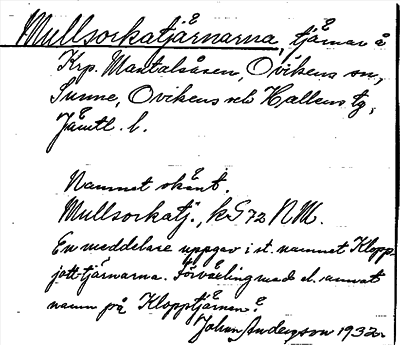 Mullsorkatjärnarna, tjärnar å
Krp. Mantalsåsen, Ovikens sn,
Sunne, Ovikens och Hallens tg,
Jämtl. l.
Namnet okänt.
Mullsorkatj., kS 72 NM.
En meddelare uppgav i st. namnet Klopp-
jott-tjärnarna. Förväxling med el. annat
namn på Klopptjärnen?
Johan Anderzson 1932.